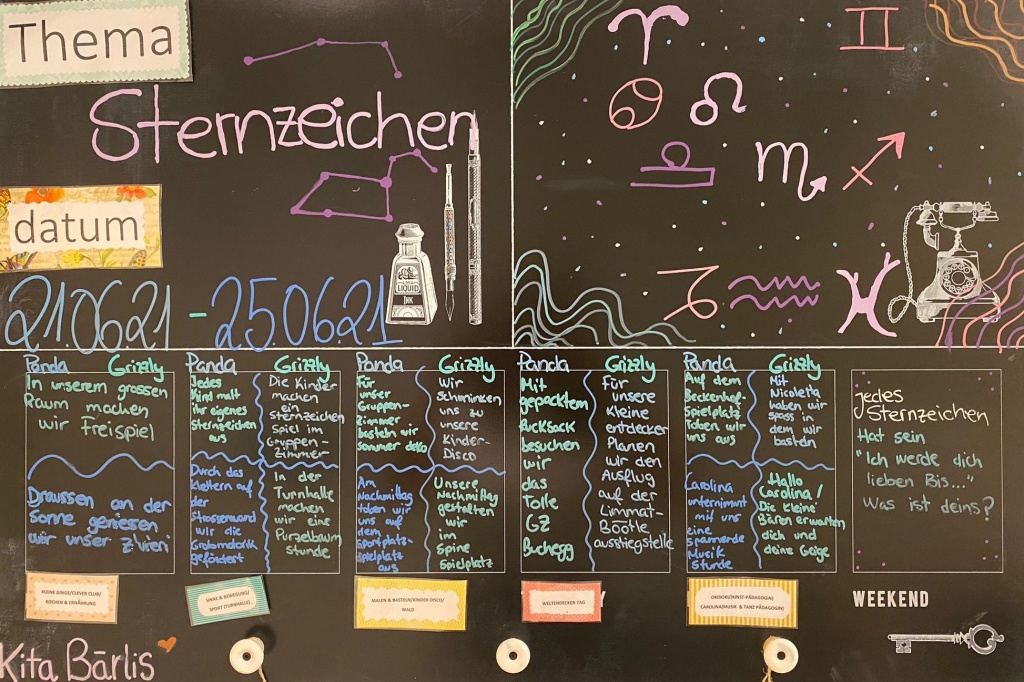 Thema
Sternzeichen
datum
21.06.21 - 25.06.21
LIQUID
INK
Panda
In unserem grossen
Raum machen
wir Freispiel
Grizzly
Draussen an der
Sonne geniesen
wir unser z'Vieri
Panda
Jedes
Kind malt
ihr eigenes
Sternzeichen
aus
Grizzly
Die Kinder
machen
ein
Sternzeichen
Spiel im
Gruppen-
Zimmer
Durch das
Klettern auf
der
Strossenwand
wir die
Grobmotorik
gefördert
In der
Turnhalle
machen
wir eine
Purzelbaum
Stunde
Panda
Für
unser
Gruppen-
zimmer
basteln wir
Sommer deko
Grizzly
Wir
schminken
uns zu
unsere
Kinder-
Disco
Am
Nachmittag
toben wir
uns auf
dem
Sportplatz-
Spielplatz
aus
Unsere
Nachmittag
gestalten
wir
im
Spine
Spielplatz
Panda
Mit
gepacktem
Rucksack
besuchen
wir
das
Tolle
GZ
Buchegg
Grizzly
Für
unsere
Kleine
entdecker
Planen
wir den
Ausflug
auf der
Limmat-
Bootle
ausstiegstelle
Panda
Auf dem
Beckenhof-
Spielplatz
Toben wir
uns aus
Grizzly
Mit
Nicoletta
haben wir
spass in
dem wir
basteln
Carolina
unternimmt
mit uns
eine
spannende
Musik
Stunde
Hallo
Carolina /
Die Kleine
Bären erwarten
dich und
deine Geige
jedes
Sternzeichen
Hat sein
"Ich werde dich
lieben Bis..."
Was ist deins?
KLEINE DINGE/CLEVER CLUB/
KOCHEN & ERNÄHRUNG
SINNE & BEWEGUNG/
SPORT (TURNHALLE)
MALEN & BASTELN/KINDER DISCO/
WALD
WELTENDECKER TAG
Y
CAROLINA/MUSIK & TANZ PÄDAGOGIN)
WEEKEND
Kita Bärlis